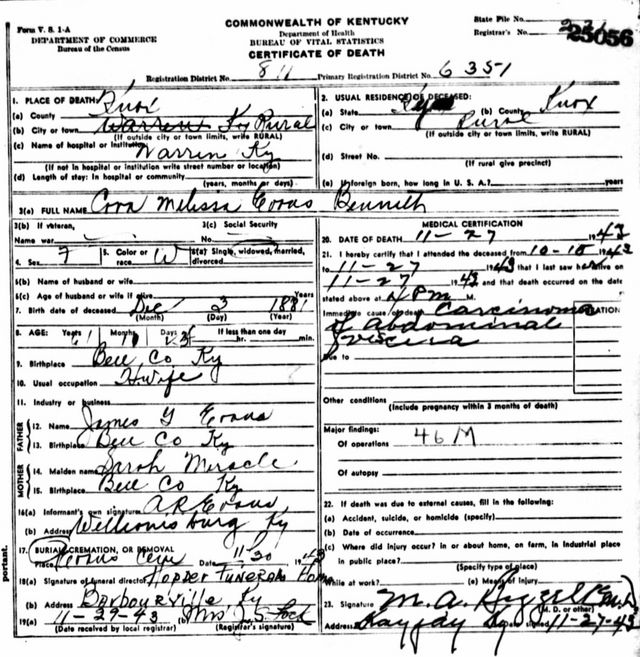 Form V. S. 1-A
DEPARTMENT OF COMMERCE
Bureau of the Census
COMMONWEALTH OF KENTUCKY
Department of Health
BUREAU OF VITAL STATISTICS
CERTIFICATE OF DEATH
State File No.
Registrar's No. 25056
Registration District No. 811 Primary Registration District No. 6351
1. PLACE OF DEATH:
(a) County Knox
(b) City or town Warren Ky Rural
(If outside city or town limits, write RURAL)
(c) Name of hospital or institution
Warren Ky
(If not in hospital or institution write street number or location)
(d) Length of stay: In hospital or community
(years, months or days)
2. USUAL RESIDENCE OF DECEASED:
(a) State Ky (b) County Knox
(c) City or town Rural
(If outside city or town limits, write RURAL)
(d) Street No.
(If rural give precinct)
(e) If foreign born, how long in U. S. A.? years
3(a) FULL NAME Cora Melissa Evans Bennett
3(b) If veteran,
Name war
3(c) Social Security
No.
4. Sex F 5. Color or race W 6(a) Single, widowed, married, divorced
6(b) Name of husband or wife
6(c) Age of husband or wife if alive Years
7. Birth date of deceased Dec 3 1881
(Month) (Day) (Year)
8. AGE: Years 61 Months 11 Days 24 If less than one day
hr. min.
9. Birthplace Bell Co Ky
10. Usual occupation H wife
11. Industry or business
FATHER
12. Name James Y Evans
13. Birthplace Bell Co Ky
MOTHER
14. Maiden name Sarah Miracle
15. Birthplace Bell Co Ky
16(a) Informant's own signature A.R. Evans
(b) Address Ky
17. BURIAL, CREMATION, OR REMOVAL
Place Evans Cem Date 11-30 1943
18(a) Signature of funeral director Hopper Funeral Home
(b) Address Barbourville Ky
19(a) 11-29-43 (b) Mrs
(Date received by local registrar) (Registrar's signature)
MEDICAL CERTIFICATION
20. DATE OF DEATH 11-27 1943
21. I hereby certify that I attended the deceased from 10-18 1943
to 11-27 1943 that I last saw alive on
11-27 1943 and that death occurred on the date
stated above at 4 PM M.
Immediate cause of death Carcinoma
of Abdominal
viscera
Due to
Other conditions
(Include pregnancy within 3 months of death)
Major findings:
Of operations 46 M
Of autopsy
22. If death was due to external causes, fill in the following:
(a) Accident, suicide, or homicide (specify)
(b) Date of occurrence
(c) Where did injury occur? In or about home, on farm, in industrial place
in public place?
(Specify type of place)
While at work? (e) Means of injury
23. Signature M. A.
(M. D. or other)
Address Kayjay Ky Date signed 11-27-43
portant.